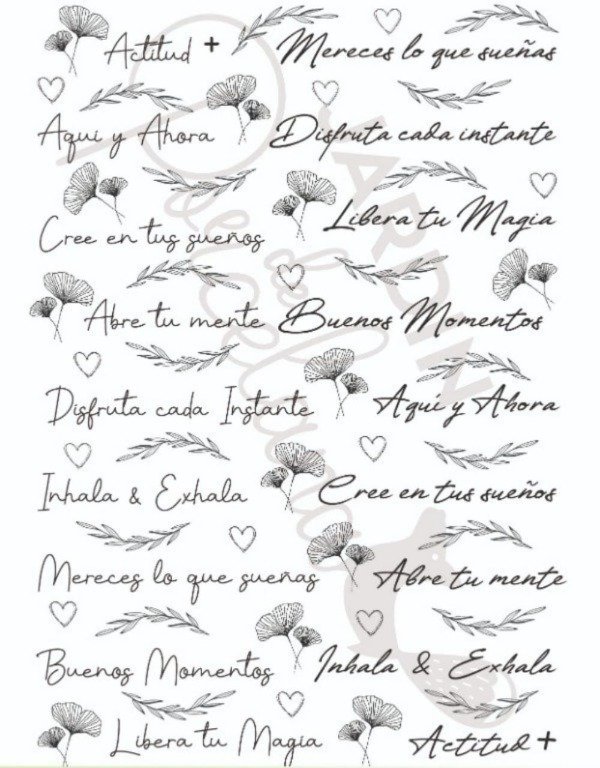 Actitud + Mereces lo que sueñas
Aqui y Ahora Disfruta cada instante
Cree en tus sueños Libera tu Magia
Abre tu mente Buenos Momentos
Disfruta cada Instante Aqui y Ahora
Inhala & Exhala Cree en tus sueños
Mereces lo que sueñas Abre tu mente
Buenos Momentos Inhala & Exhala
Libera tu Magia Actitud +
JARDIN
de